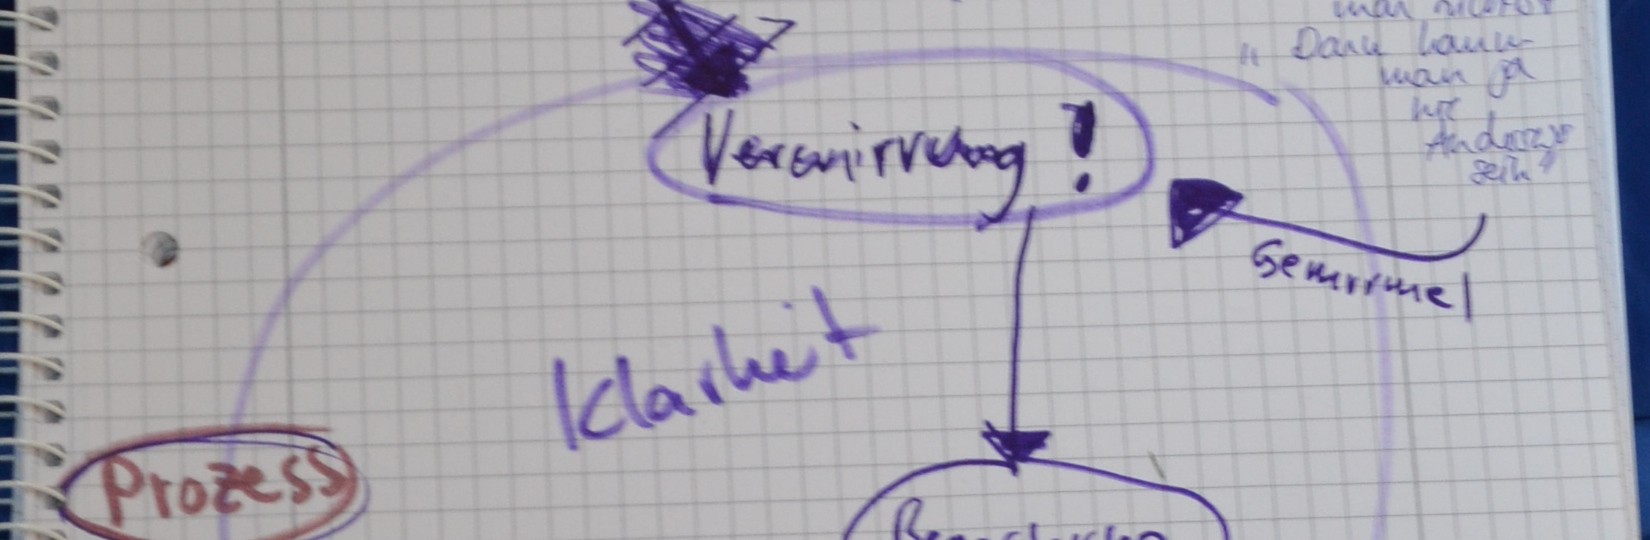 "Dann kann
man ja
nur
Anderer
sein"
Verwirrung!
Gewimmel
Klarheit
Prozess